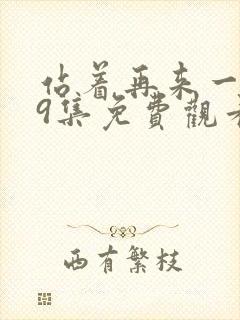 佔着再来一
9集免費觀看
西有繁枝